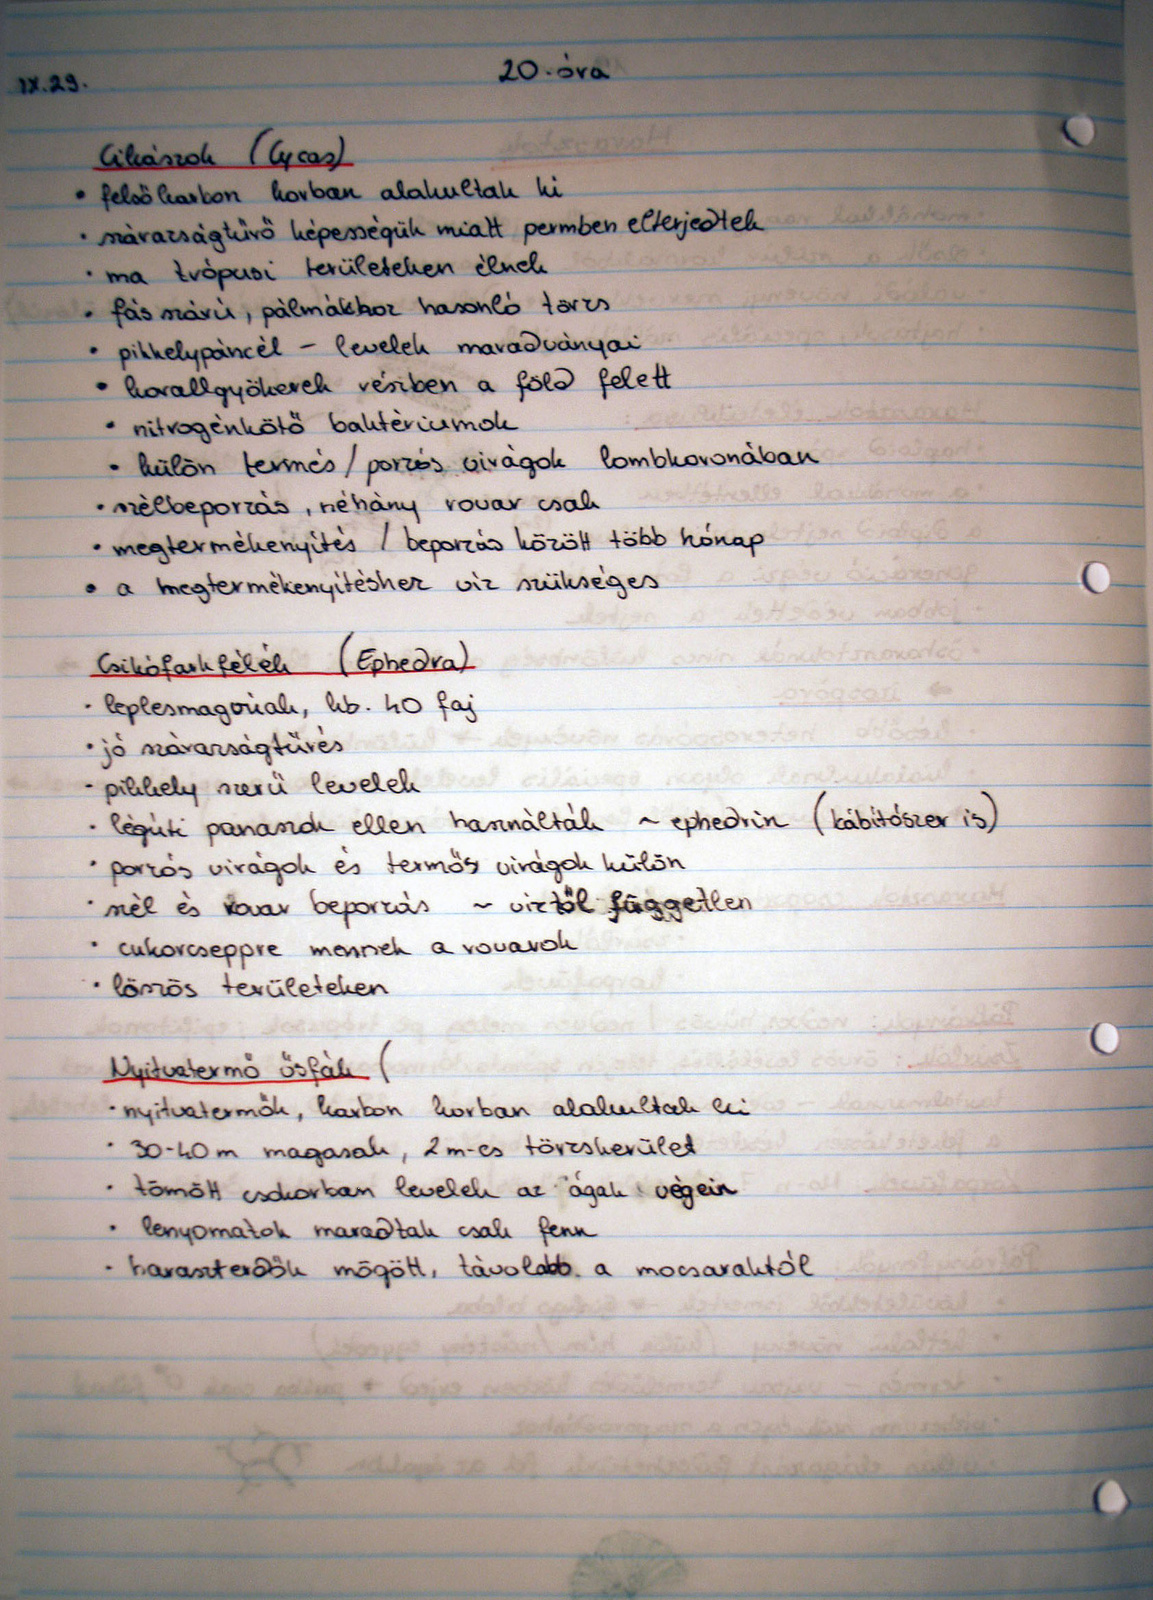 IX.29.
20. óra
Cikászok (Cycas)
• felsőkarbon korban alakultak ki
• szárazságtűrő képességük miatt permben elterjedtek
• ma trópusi területeken élnek
• fás szárú, pálmákhoz hasonló törzs
• pikkelypáncél - levelek maradványai
• korallgyökerek részben a föld felett
• nitrogénkötő baktériumok
• külön termés/porzós virágok lombkoronában
• szélbeporzás, néhány rovar csak
• megtermékenyítés / beporzás között több hónap
• a megtermékenyítéshez víz szükséges
Csikófarkfélék (Ephedra)
• leplesmagvúak, kb. 40 faj
• jó szárazságtűrés
• pikkely szerű levelek
• légúti panaszok ellen használták ~ ephedrin (kábítószer is)
• porzós virágok és termős virágok külön
• szél és rovar beporzás ~ víztől független
• cukorcseppre mennek a rovarok
• löszös területeken
Nyitvatermő ősfák (
• nyitvatermők, karbon korban alakultak ki
• 30-40 m magasak, 2 m-es törzskerület
• tömött csokorban levelek az ágak végein
• lenyomatok maradtak csak fenn
• haraszterdők mögött, távolabb a mocsaraktól